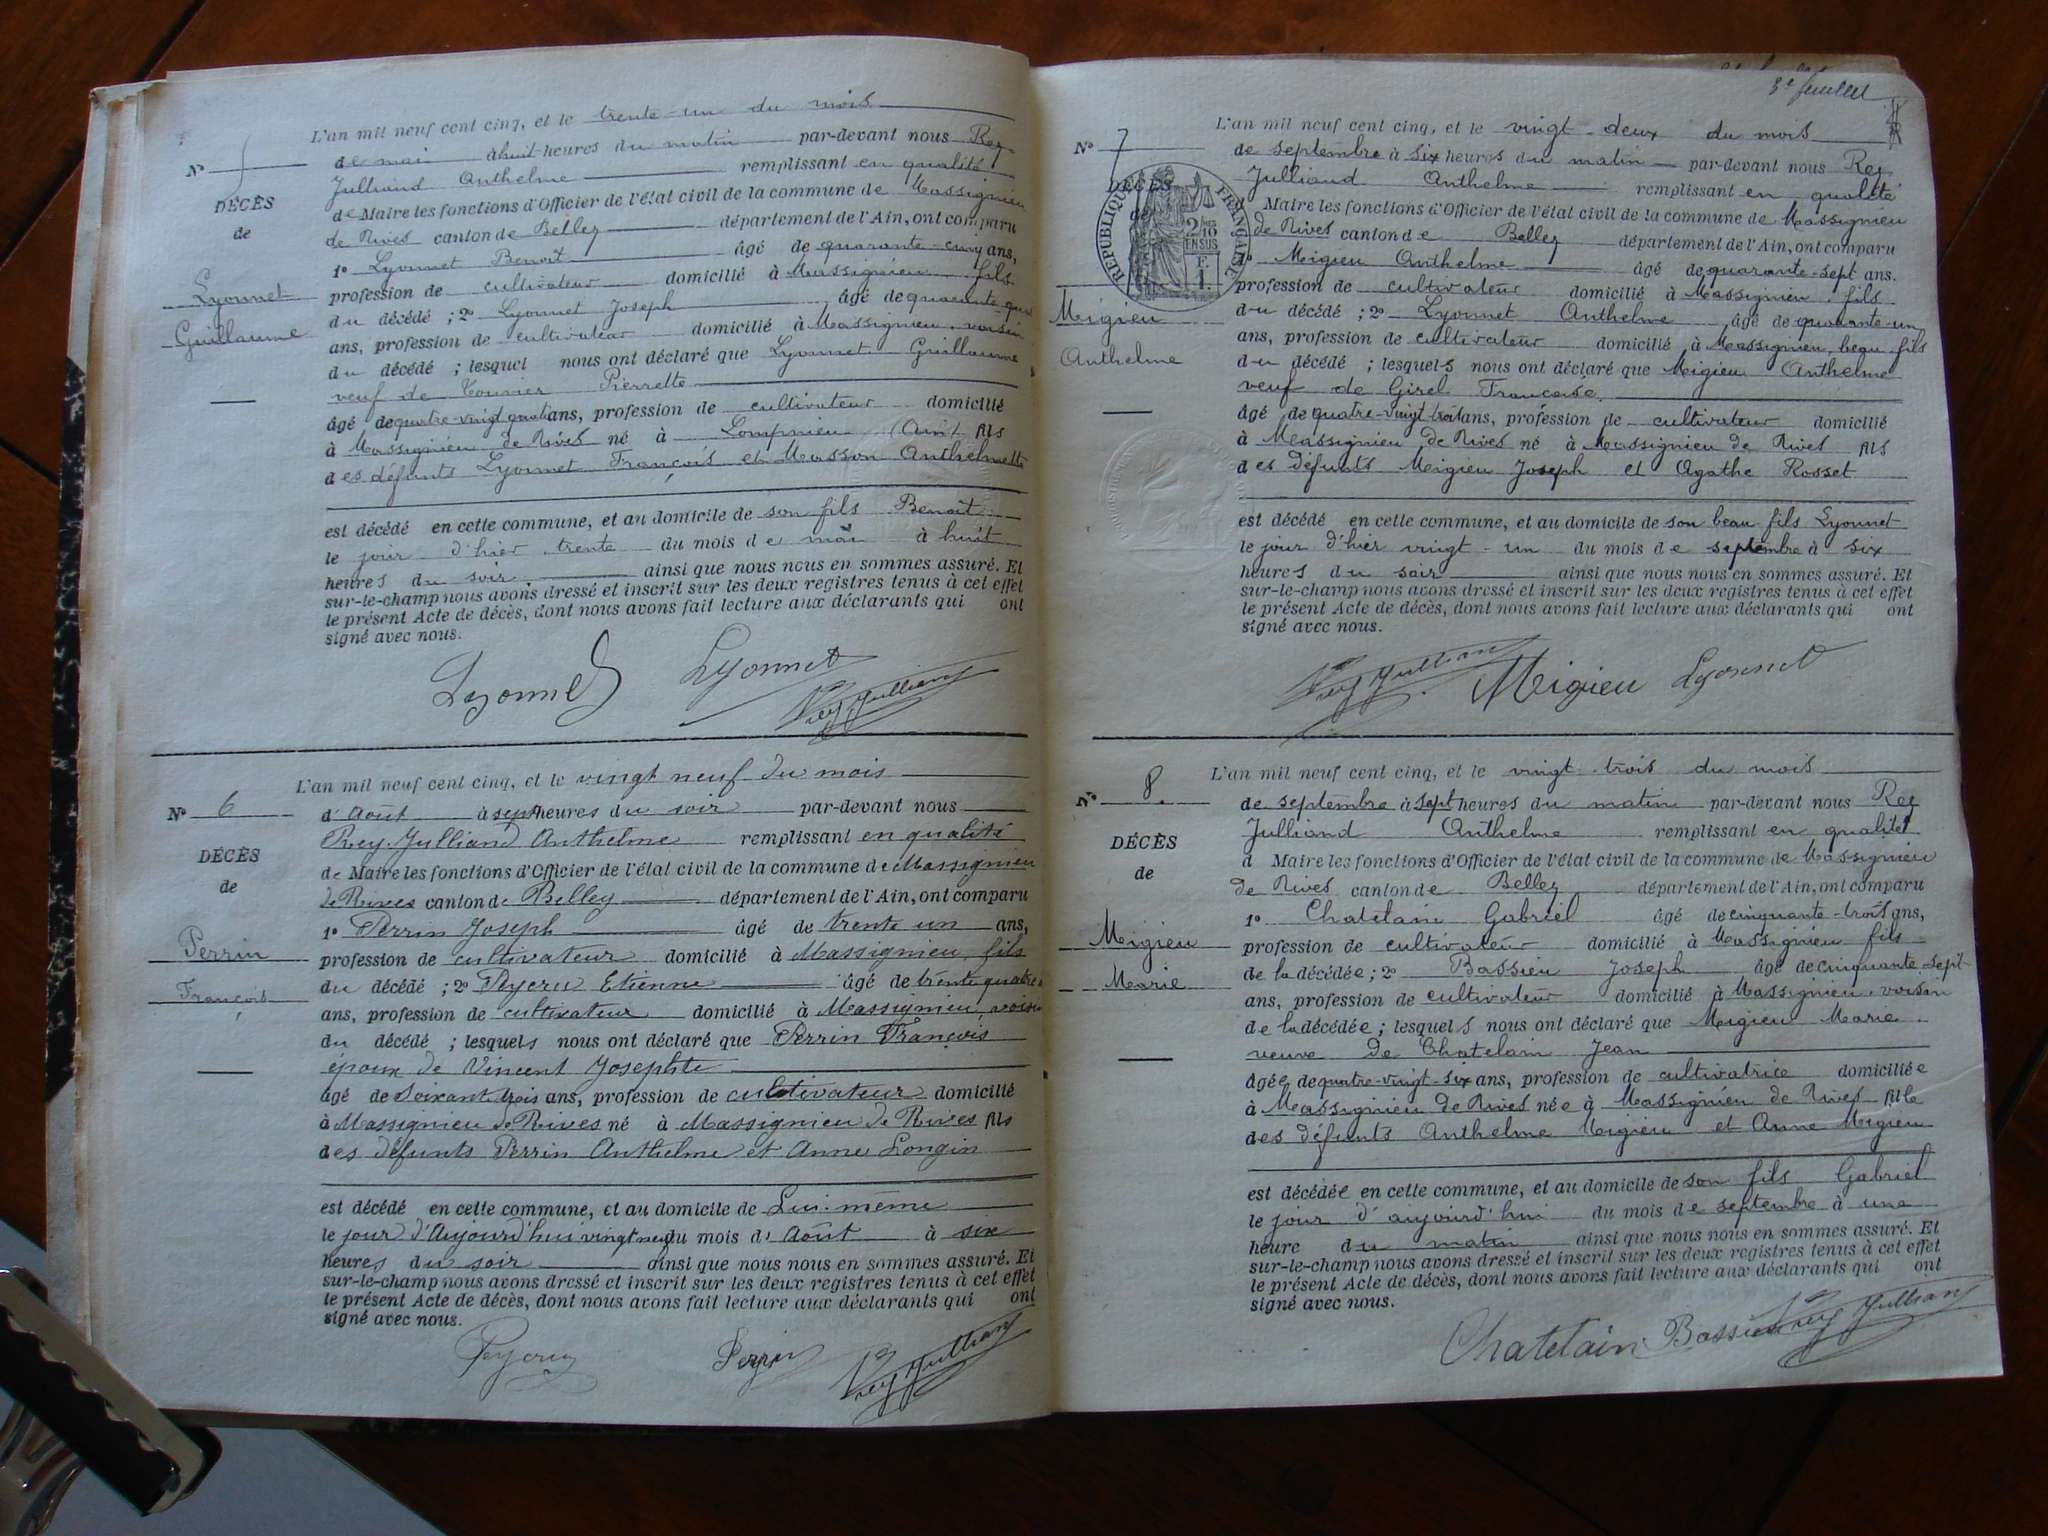 L'an mil neuf cent cinq, et le trente-un du mois
N° 5
de mai à huit heures du matin par-devant nous Rey
Julliand Anthelme remplissant en qualité
DÉCÈS
de Maire les fonctions d'Officier de l'état civil de la commune de Massignieu
de
de Rives canton de Belley département de l'Ain, ont comparu
1° Lyonnet Benoit âgé de quarante-cinq ans,
Lyonnet
profession de cultivateur domicilié à Massignieu fils
Guillaume
du décédé ; 2° Lyonnet Joseph âgé de quarante
ans, profession de cultivateur domicilié à Massignieu, voisin
du décédé ; lesquel nous ont déclaré que Lyonnet Guillaume
veuf de Pierrette
âgé de quatre-vingt quatre ans, profession de cultivateur domicilié
à Massignieu de Rives né à Lompnieu (Ain) fils
des défunts Lyonnet François et Masson Anthelmette
est décédé en cette commune, et au domicile de son fils Benoît
le jour d'hier trente du mois de mai à huit
heures du soir ainsi que nous nous en sommes assuré. Et
sur-le-champ nous avons dressé et inscrit sur les deux registres tenus à cet effet
le présent Acte de décès, dont nous avons fait lecture aux déclarants qui ont
signé avec nous.
Lyonnet Lyonnet Rey Julliand
L'an mil neuf cent cinq, et le vingt neuf du mois
N° 6
d'Août à sept heures du soir par-devant nous
Rey-Julliand Anthelme remplissant en qualité
DÉCÈS
de Maire les fonctions d'Officier de l'état civil de la commune de Massignieu
de
de Rives canton de Belley département de l'Ain, ont comparu
1° Perrin Joseph âgé de trente un ans,
Perrin
profession de cultivateur domicilié à Massignieu, fils
François
du décédé ; 2° Peycru Etienne âgé de trente quatre
ans, profession de cultivateur domicilié à Massignieu, voisin
du décédé ; lesquels nous ont déclaré que Perrin François
époux de Vincent Josephte
âgé de Soixant trois ans, profession de cultivateur domicilié
à Massignieu de Rives né à Massignieu de Rives fils
des défunts Perrin Anthelme et Anne Longin
est décédé en cette commune, et au domicile de Lui-même
le jour d'Aujourd'hui vingt neuf du mois d'Août à six
heures du soir ainsi que nous nous en sommes assuré. Et
sur-le-champ nous avons dressé et inscrit sur les deux registres tenus à cet effet
le présent Acte de décès, dont nous avons fait lecture aux déclarants qui ont
signé avec nous.
Peycru Perrin Rey Julliand
3e feuillet
L'an mil neuf cent cinq, et le vingt-deux du mois
N° 7
de septembre à six heures du matin par-devant nous Rey
DÉCÈS
de
Julliand Anthelme remplissant en qualité
RÉPUBLIQUE FRANÇAISE
2/10 EN SUS
F. 1.
d Maire les fonctions d'Officier de l'état civil de la commune de Massignieu
de Rives canton de Belley département de l'Ain, ont comparu
Migieu Anthelme âgé de quarante-sept ans.
profession de cultivateur domicilié à Massignieu, fils
Migieu
du décédé ; 2° Lyonnet Anthelme, âgé de quarante-un
Anthelme
ans, profession de cultivateur domicilié à Massignieu, beau fils
du décédé ; lesquels nous ont déclaré que Migieu Anthelme
veuf de Girel Françoise.
âgé de quatre-vingt trois ans, profession de cultivateur domicilié
à Massignieu de Rives né à Massignieu de Rives fils
des défunts Migieu Joseph et Agathe Rosset
est décédé en cette commune, et au domicile de son beau fils Lyonnet
le jour d'hier vingt-un du mois de septembre à six
heures du soir ainsi que nous nous en sommes assuré. Et
sur-le-champ nous avons dressé et inscrit sur les deux registres tenus à cet effet
le présent Acte de décès, dont nous avons fait lecture aux déclarants qui ont
signé avec nous.
Rey Julliand Migieu Lyonnet
L'an mil neuf cent cinq, et le vingt-trois du mois
N° 8.
de septembre à sept heures du matin par-devant nous Rey
Julliand Anthelme remplissant en qualité
DÉCÈS
d Maire les fonctions d'Officier de l'état civil de la commune de Massignieu
de
de Rives canton de Belley département de l'Ain, ont comparu
1° Chatelain Gabriel âgé de cinquante-trois ans,
Migieu
profession de cultivateur domicilié à Massignieu fils
Marie
de la décédée ; 2° Bassieu Joseph âgé de cinquante-sept
ans, profession de cultivateur domicilié à Massignieu, voisin
de la décédée ; lesquels nous ont déclaré que Migieu Marie
veuve de Chatelain Jean
âgée de quatre-vingt-six ans, profession de cultivatrice domiciliée
à Massignieu de Rives née à Massignieu de Rives fille
des défunts Anthelme Migieu et Anne Migieu
est décédée en cette commune, et au domicile de son fils Gabriel
le jour d'aujourd'hui du mois de septembre à une
heure du matin ainsi que nous nous en sommes assuré. Et
sur-le-champ nous avons dressé et inscrit sur les deux registres tenus à cet effet
le présent Acte de décès, dont nous avons fait lecture aux déclarants qui ont
signé avec nous.
Chatelain Bassieu Rey Julliand